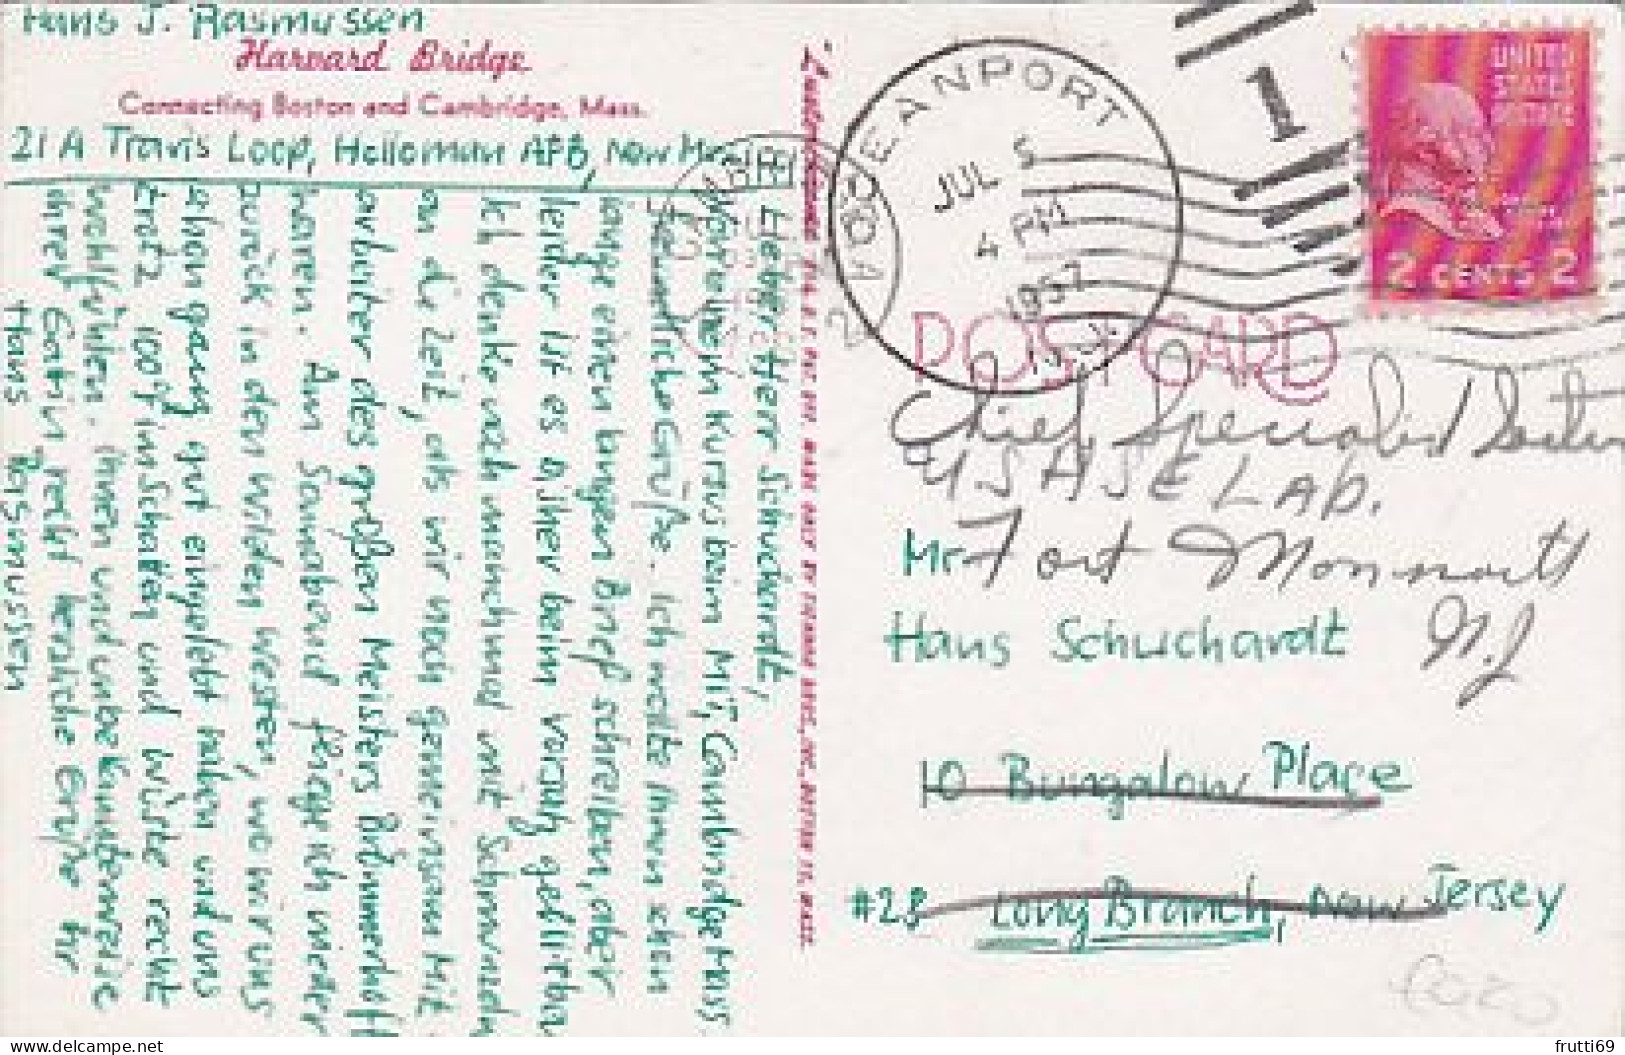 Hans J. Rasmussen
Harvard Bridge
Connecting Boston and Cambridge, Mass.
21 A Travis Loop, Holloman AFB, New Mexico
Lieber Herr Schuchardt,
Von einem Kursus beim MIT, Cambridge Mass
herzliche Grüße. Ich wollte Ihnen schon
lange einen langen Brief schreiben, aber
leider ist es bisher beim Vorsatz geblieben
Ich denke noch manchmal mit Schmunzeln
an die Zeit, als wir noch gemeinsam Mit-
arbeiter des großen Meisters
waren. Am Sonnabend fliege ich wieder
zurück in den wilden Westen, wo wir uns
schon ganz gut eingelebt haben und uns
trotz 100°F im Schatten und Wüste recht
wohlfühlen. Ihnen und unbekannterweise
Ihrer Gattin recht herzliche Grüße Ihr
Hans Rasmussen
OCEANPORT
JUL 5
4 PM
1957
N.J.
1
UNITED
STATES
POSTAGE
2 CENTS 2
POST CARD
Chief, Specialist Section
USASE LAB.
Mr Fort Monmouth
Hans Schuchardt N.J
10 Bungalow Place
#28 Long Branch, New Jersey
frutti69